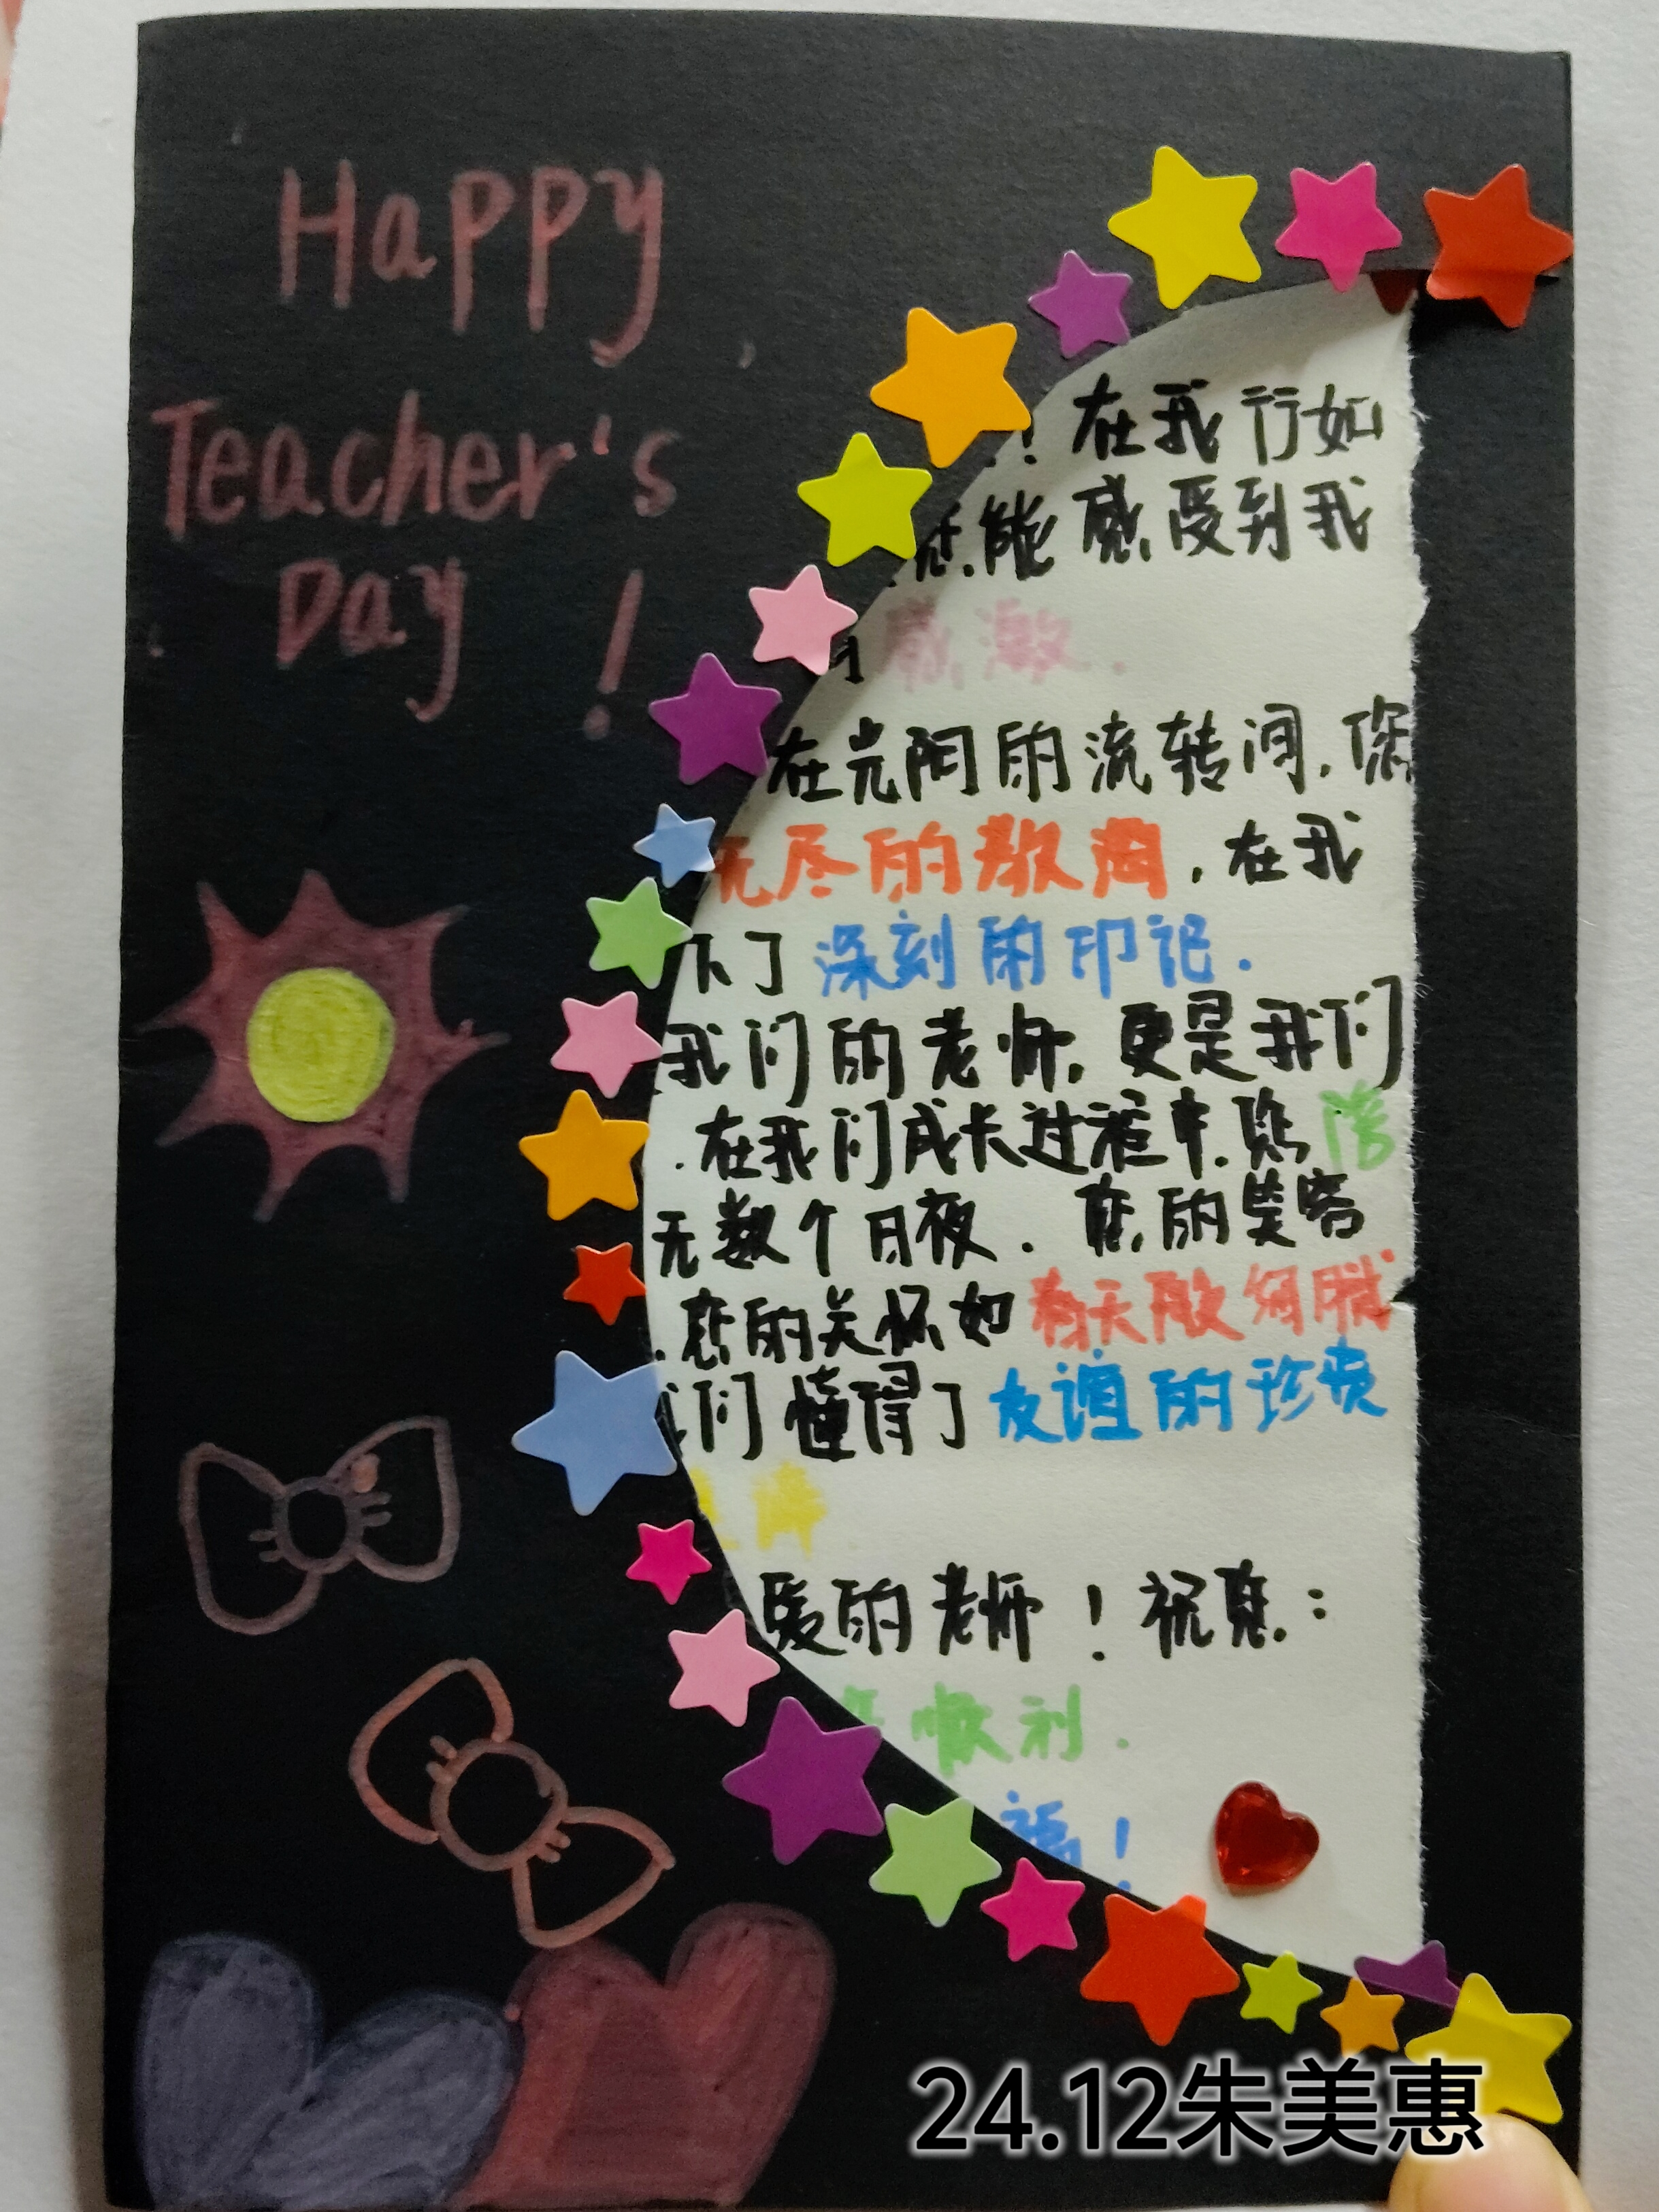 Happy
Teacher's
Day !
! 在我行如
您能感受到我
感激.
在光阴的流转间,您
无尽的教诲,在我
下了深刻的印记.
我们的老师,更是我们
.在我们成长过程中.您陪
无数个日夜.您的笑容
.您的关怀如春天般细腻
们懂得了友谊的珍贵
爱的老师!祝您:
顺利.
福!
24.12朱美惠